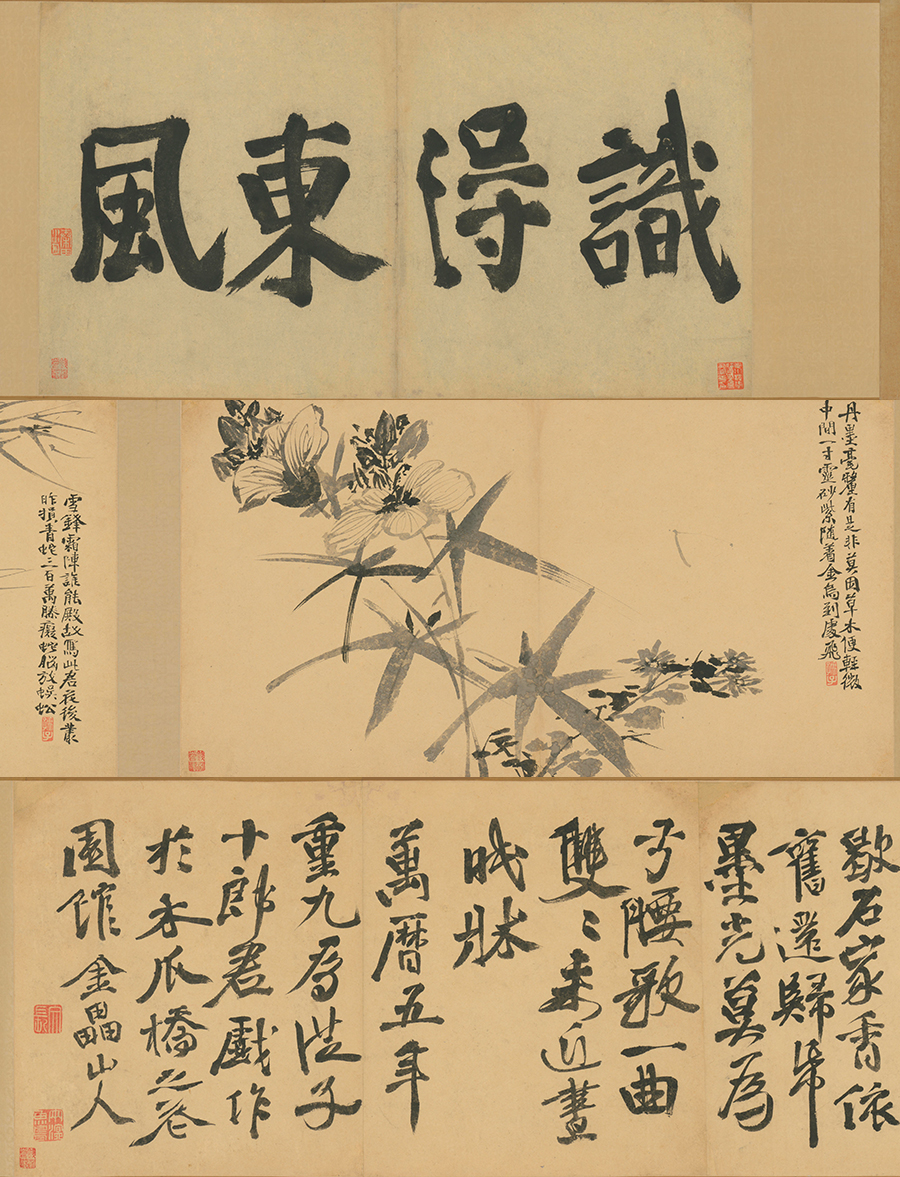 識得東風
丹墨毫釐有是非莫因草木便輕微
中間一寸靈砂紫隨着金烏到處飛
雪鋒霜陣誰能殿故寫此君花後叢
昨損青蛇三百萬勝癡蛇腦放蜈蚣
石家香依
舊還歸
墨光莫為
腰歌一曲
雙二來近晝
眠牀
萬曆五年
重九為子
十郎君戲作
於木瓜橋之菴
園館金壘山人